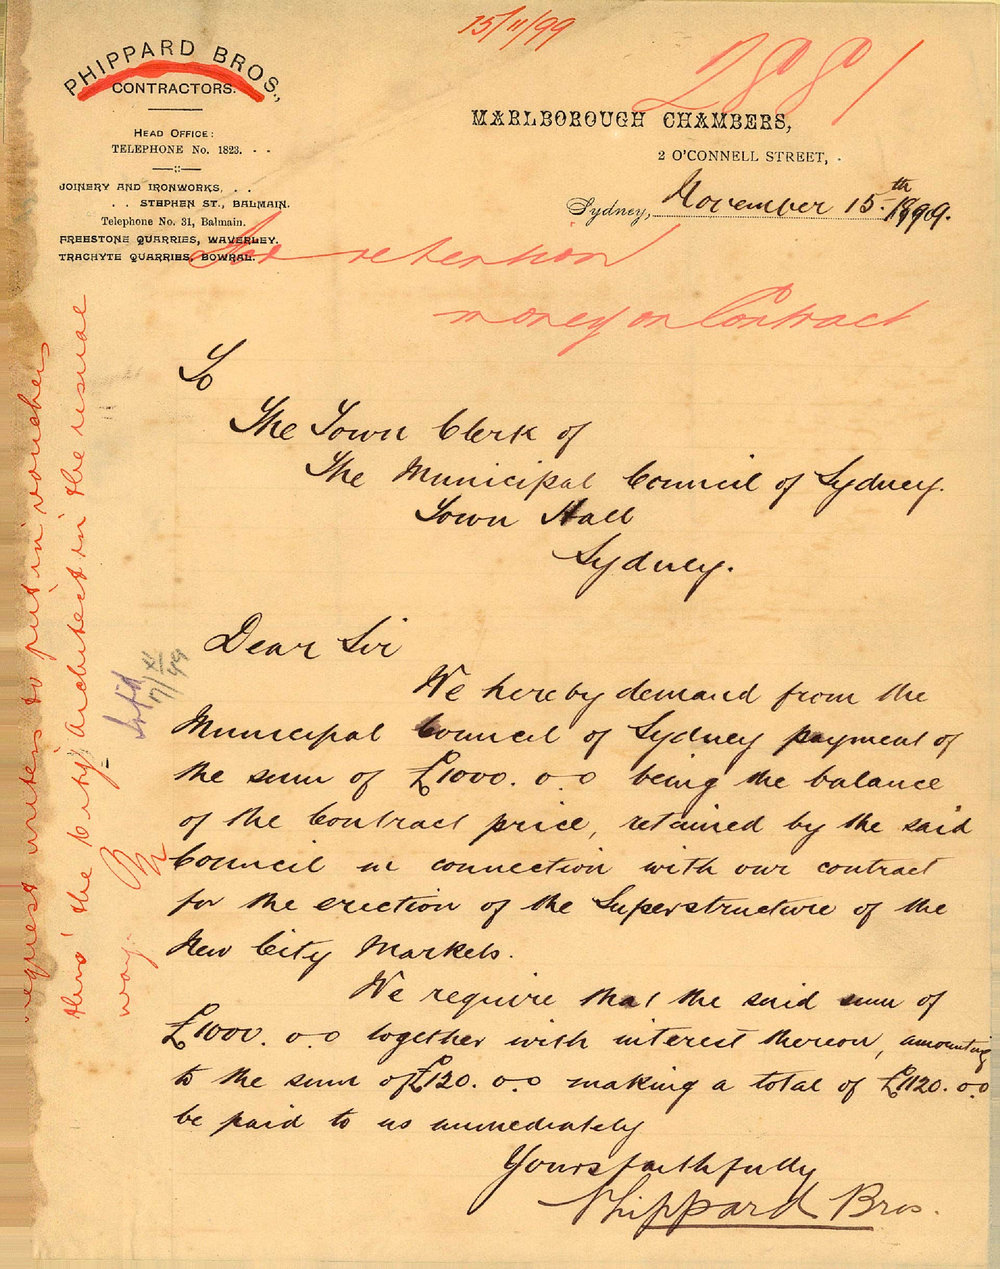 15/11/99
2881
PHIPPARD BROS.,
CONTRACTORS.
HEAD OFFICE:
TELEPHONE No. 1823.
JOINERY AND IRONWORKS,
STEPHEN ST., BALMAIN.
Telephone No. 31, Balmain.
FREESTONE QUARRIES, WAVERLEY.
TRACHYTE QUARRIES, BOWRAL.
MARLBOROUGH CHAMBERS,
2 O'CONNELL STREET,
Sydney, November 15th 1899.
For retention
money on Contract
To
The Town Clerk of
The Municipal Council of Sydney.
Town Hall
Sydney.
Dear Sir
We hereby demand from the
Municipal Council of Sydney payment of
the sum of £1000. 0.0 being the balance
of the Contract price, retained by the said
Council in connection with our contract
for the erection of the Superstructure of the
New City Markets.
We require that the said sum of
£1000. 0.0 together with interest thereon, amounting
to the sum of £120. 0.0 making a total of £1120. 0.0
be paid to us immediately
Yours faithfully
Phippard Bros.
request writers to put in vouchers
thro' the City Architect in the usual
way.
17/XI/99